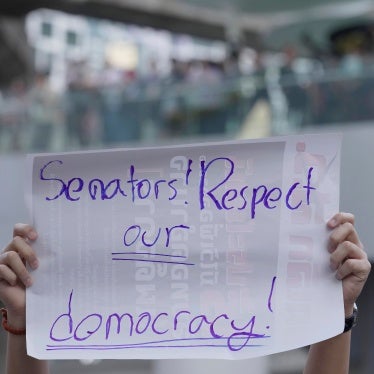 Senators! Respect
our
domocracy!